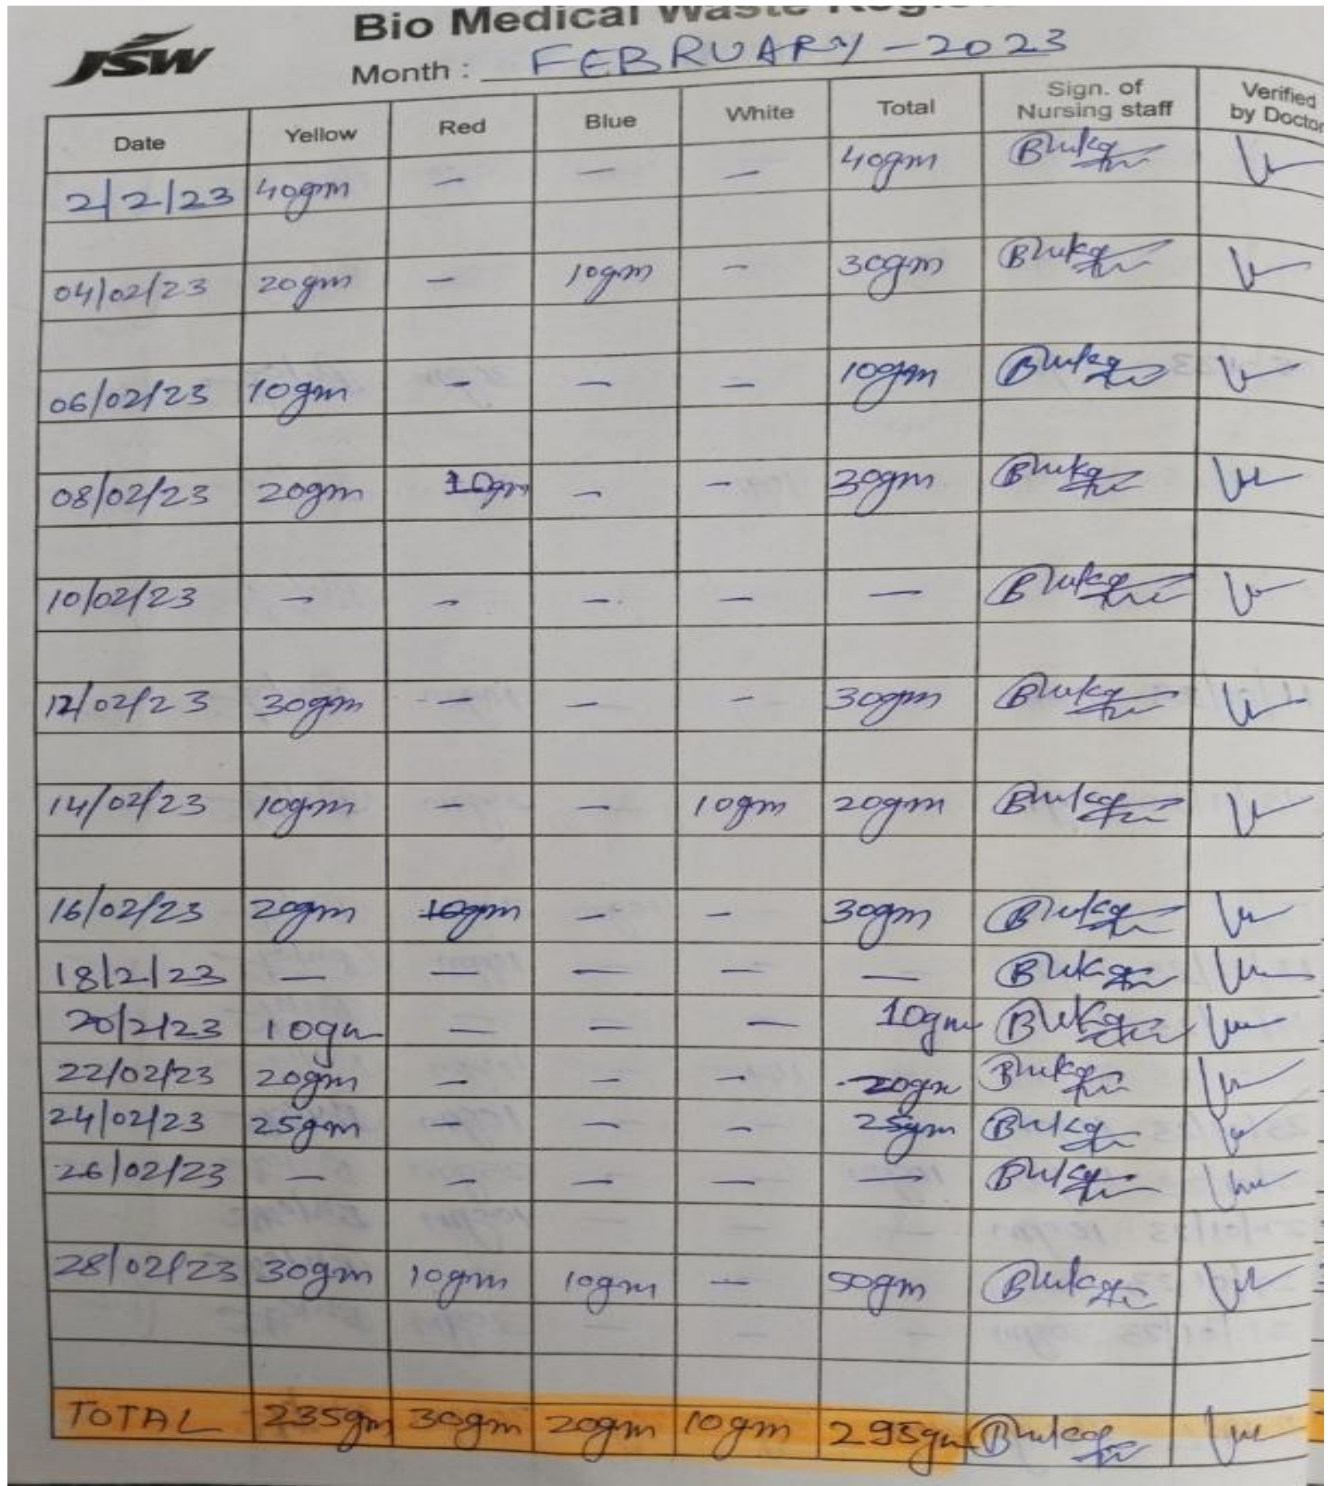 JSW
Bio Medical Waste
Month : FEBRUARY - 2023
Date Yellow Red Blue White Total Sign. of Nursing staff Verified by Doctor
2/2/23 40gm - - - 40gm
04/02/23 20gm - 10gm - 30gm
06/02/23 10gm - - - 10gm
08/02/23 20gm 10gm - - 30gm
10/02/23 - - - - -
12/02/23 30gm - - - 30gm
14/02/23 10gm - - 10gm 20gm
16/02/23 20gm 10gm - - 30gm
18/2/23 - - - - -
20/2/23 10gm - - - 10gm
22/02/23 20gm - - - 20gm
24/02/23 25gm - - - 25gm
26/02/23 - - - - -
28/02/23 30gm 10gm 10gm - 50gm
TOTAL 235gm 30gm 20gm 10gm 295gm